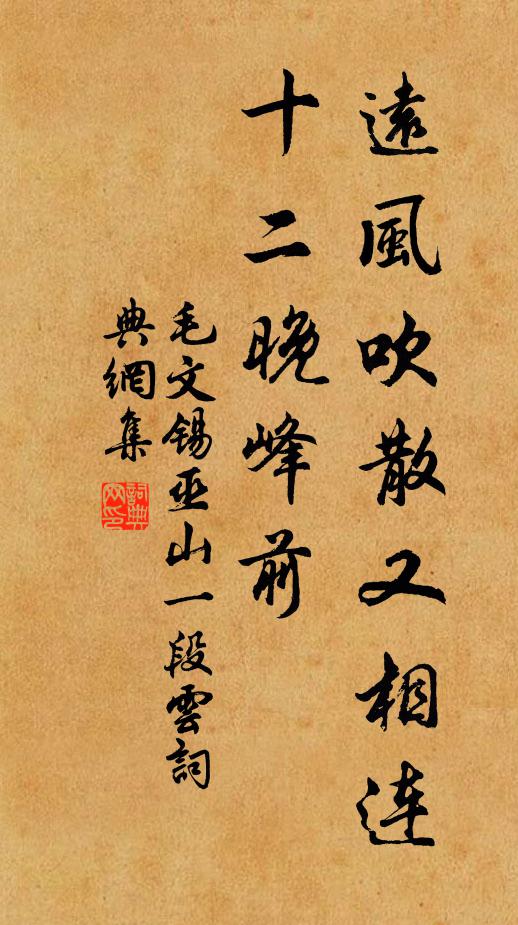 遠風吹散又相連
十二晚峰前
毛文锡巫山一段雲詞
典網集
詞典网印